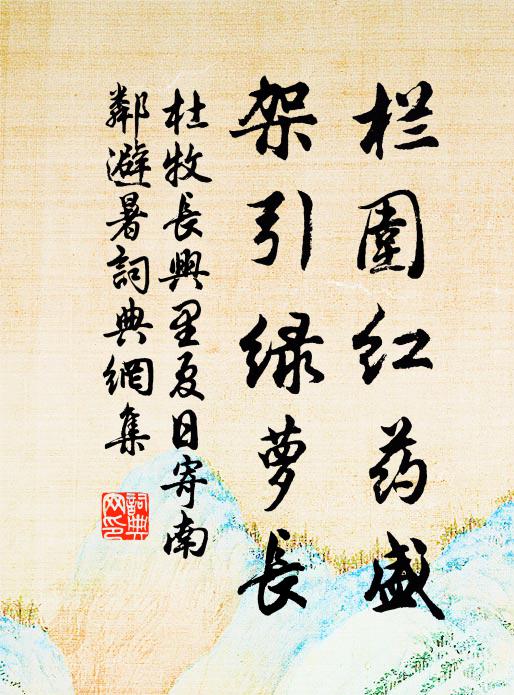 栏圍红药盛
架引绿萝長
杜牧長興里夏日寄南
鄰避暑詞典網集
詞典
网印